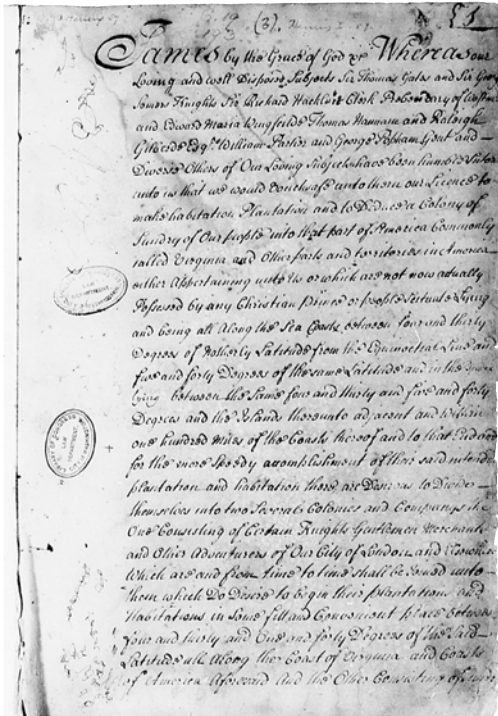 (3).
James by the Grace of God &c Whereas our
Loving and well Disposed Subjects Sir Thomas Gates and Sir George
Somers Knights Sir Richard Hackluit Clerk Prebendary of
and Edward Maria Wingfeilde Thomas Hannam and Raleigh
Gilberde Esqrs. William Parker and George Popham Gent and
Diverse Others of Our Loving Subjects have been humble
unto us that we would vouchsafe unto them our Licence to
make habitation Plantation and to Deduce a Colony of
Sundry of Our people into that part of America Commonly
called Virginia and Other parts and territories in America
either Appertaining unto Us or which are not now actually
Possessed by any Christian Prince or people Scituate Lying
and being all Along the Sea Coasts between four and thirty
Degrees of Northerly Latitude from the Equinoctial Line and
five and forty Degrees of the same Latitude and in the
between the Same four and thirty and five and forty
Degrees and the Islands thereunto adjacent and within
one hundred Miles of the Coasts thereof and to that End and
for the more Speedy accomplishment of their said intended
plantation and habitation there are Desirous to Divide
themselves into two Several Colonies and Companys the
One Consisting of Certain Knights Gentlemen Merchants
and Other Adventurers of Our City of London and Elsewhere
which are and from time to time shall be joined unto
them which Do Desire to begin their plantations and
habitations in some fitt and Convenient place between
four and thirty and One and forty Degrees of the said
Latitude all Along the Coast of Virginia and Coasts
of America Aforesaid And the Other Consisting of